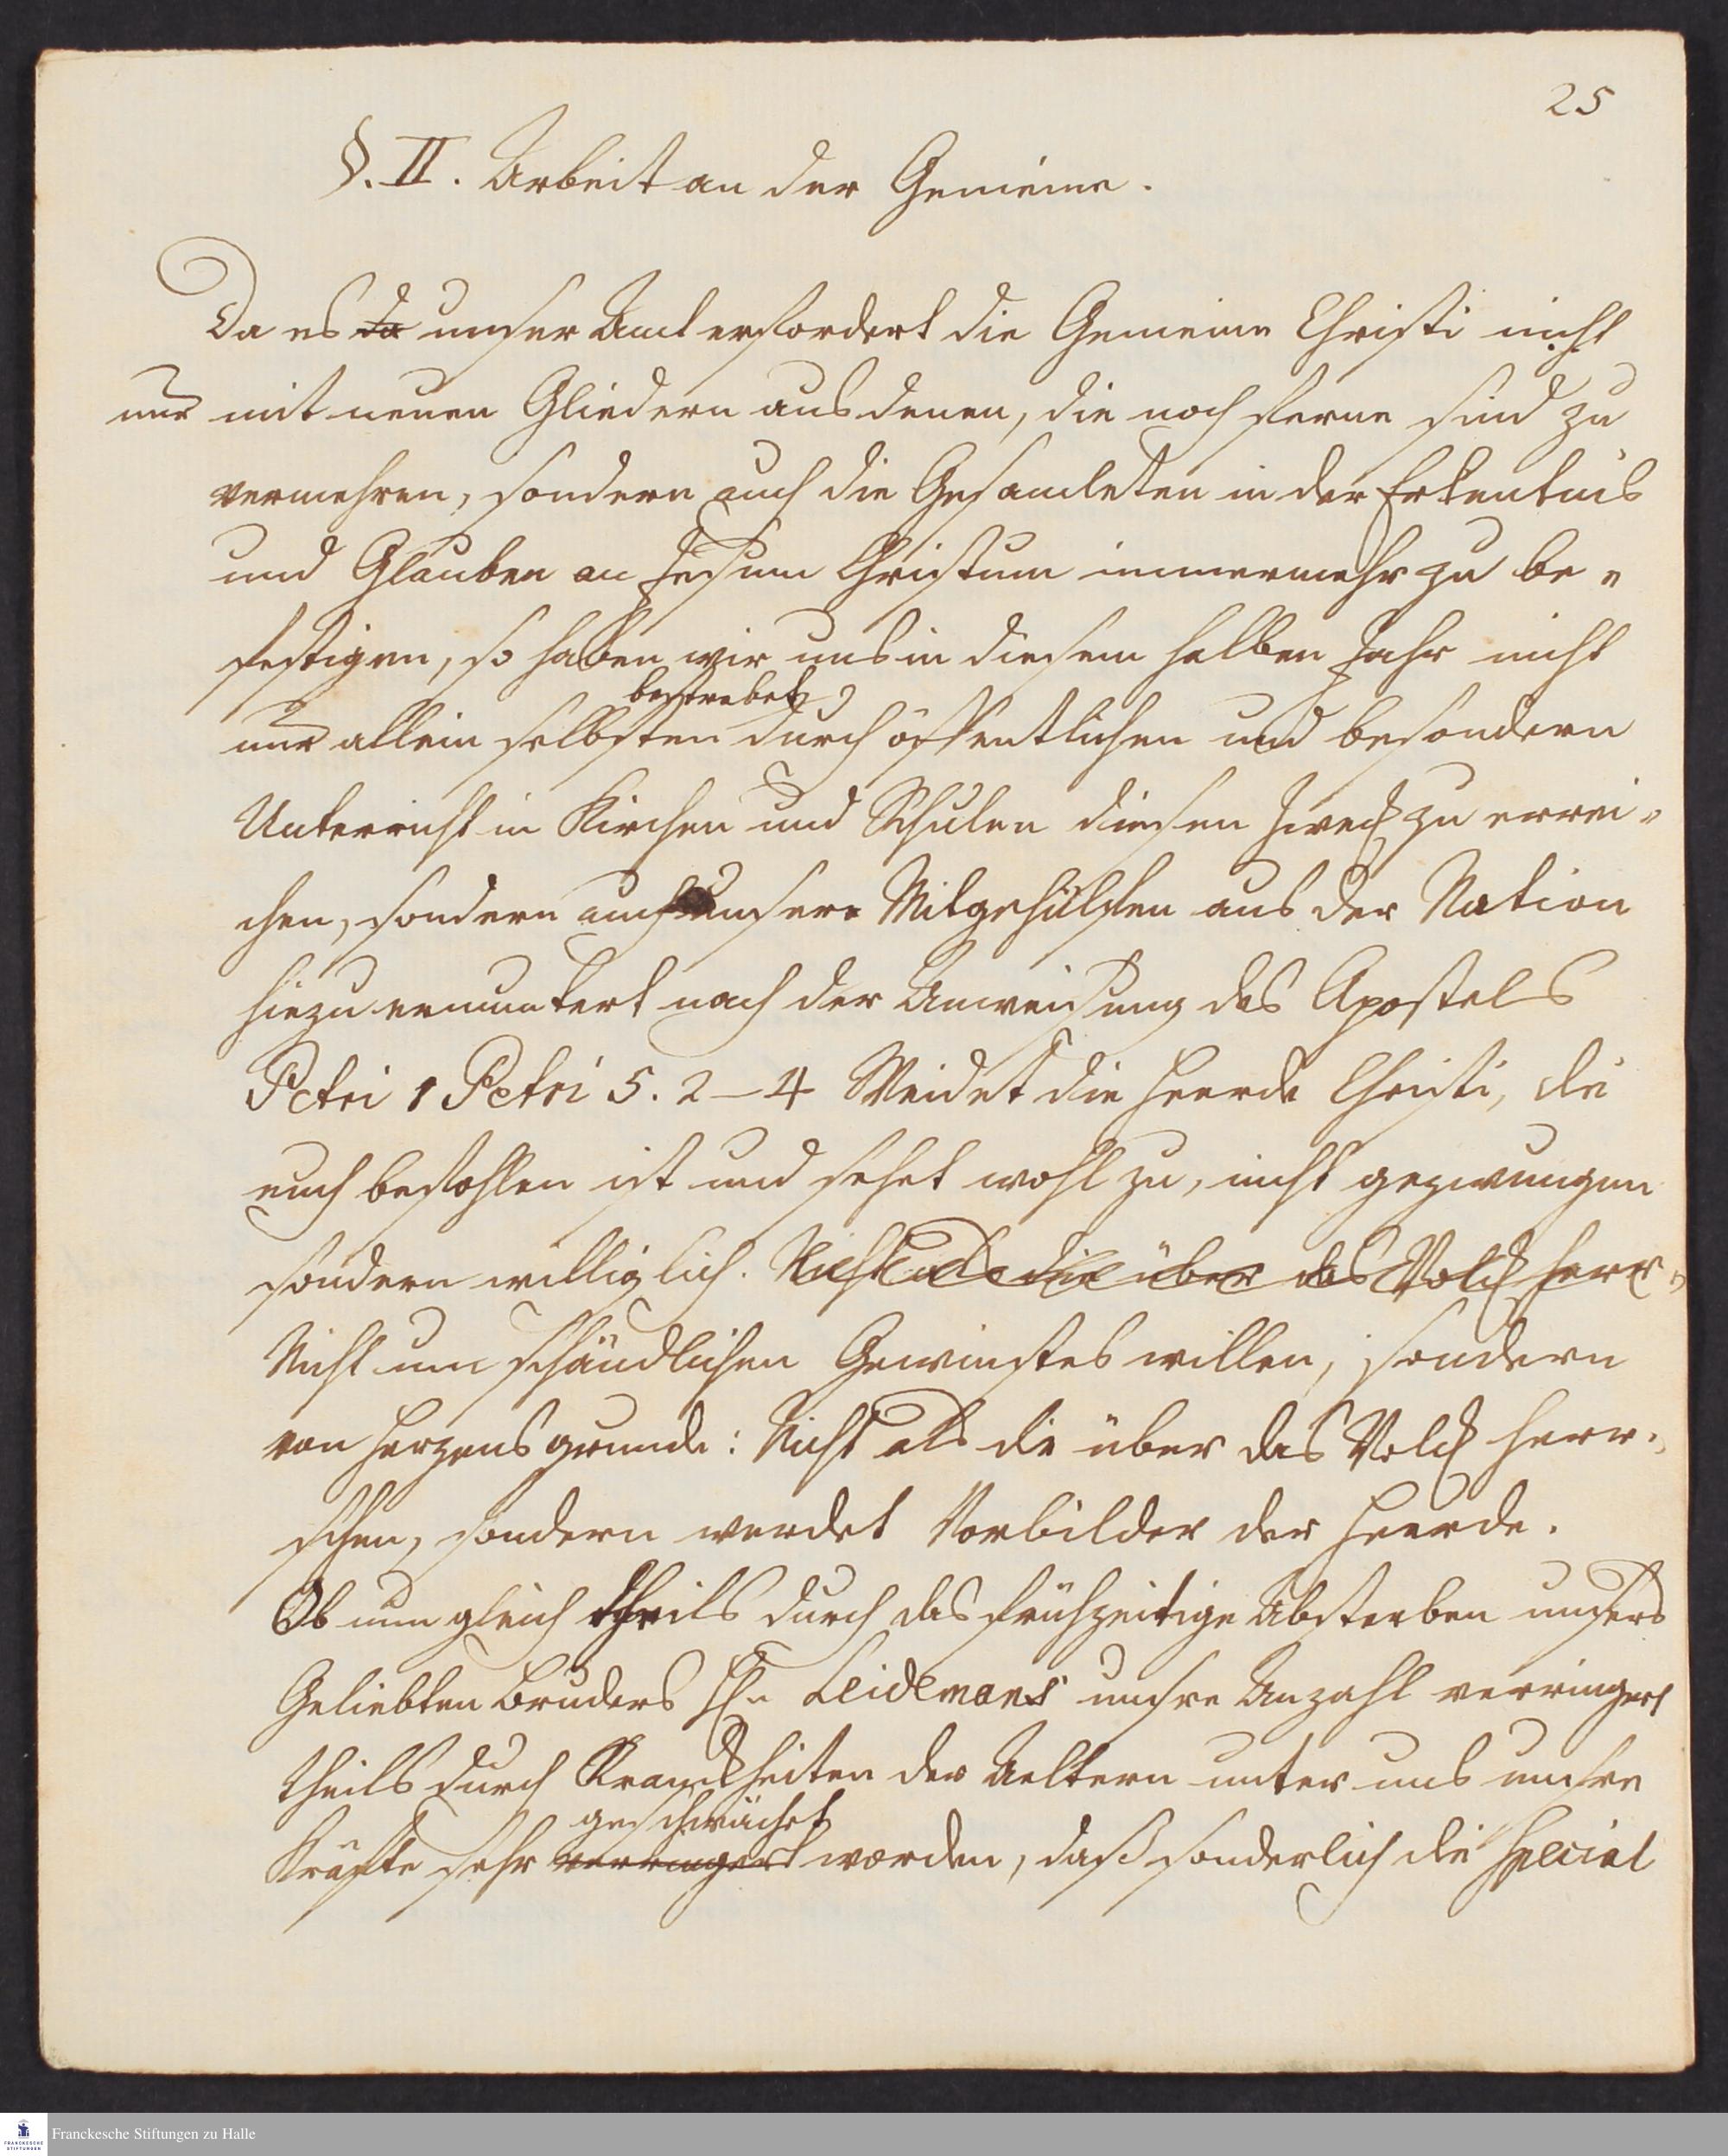 25
§. II. Arbeit an der Gemeine.
Da es da unser Amt erfordert die Gemeine Christi nicht
nur mit neuen Gliedern aus denen, die noch ferne sind zu
vermehren, sondern auch die Gesamleten in der Erkentnis
und Glauben an Jesum Christum immermehr zu be-
festigen, so haben wir uns in diesem halben Jahr nicht
bestrebet
nur allein selbsten durch öffentlichen und besondern
Unterricht in Kirchen und Schulen diesen Zweck zu errei-
chen, sondern auch unsere Mitgehülfen aus der Nation
hiezu ermuntert nach der Anweisung des Apostels
Petri 1 Petri 5. 2–4 Weidet die Heerde Christi, die
euch befohlen ist und sehet wohl zu, nicht gezwungen
sondern williglich. Nicht als die über das Volck herr-
Nicht um schändlichen Gewinstes willen, sondern
von Herzensgrunde: Nicht als die über das Volck herr-
schen, sondern werdet Vorbilder der Heerde.
Ob nun gleich theils durch das frühzeitige Absterben unsers
Geliebten Bruders Hn Leidemans unsre Anzahl verringert
theils durch Kranckheiten der Aeltern unter uns unsre
geschwächet
Kräfte sehr verringert worden, daß sonderlich die Special
Franckesche Stiftungen zu Halle
FRANCKESCHE
STIFTUNGEN